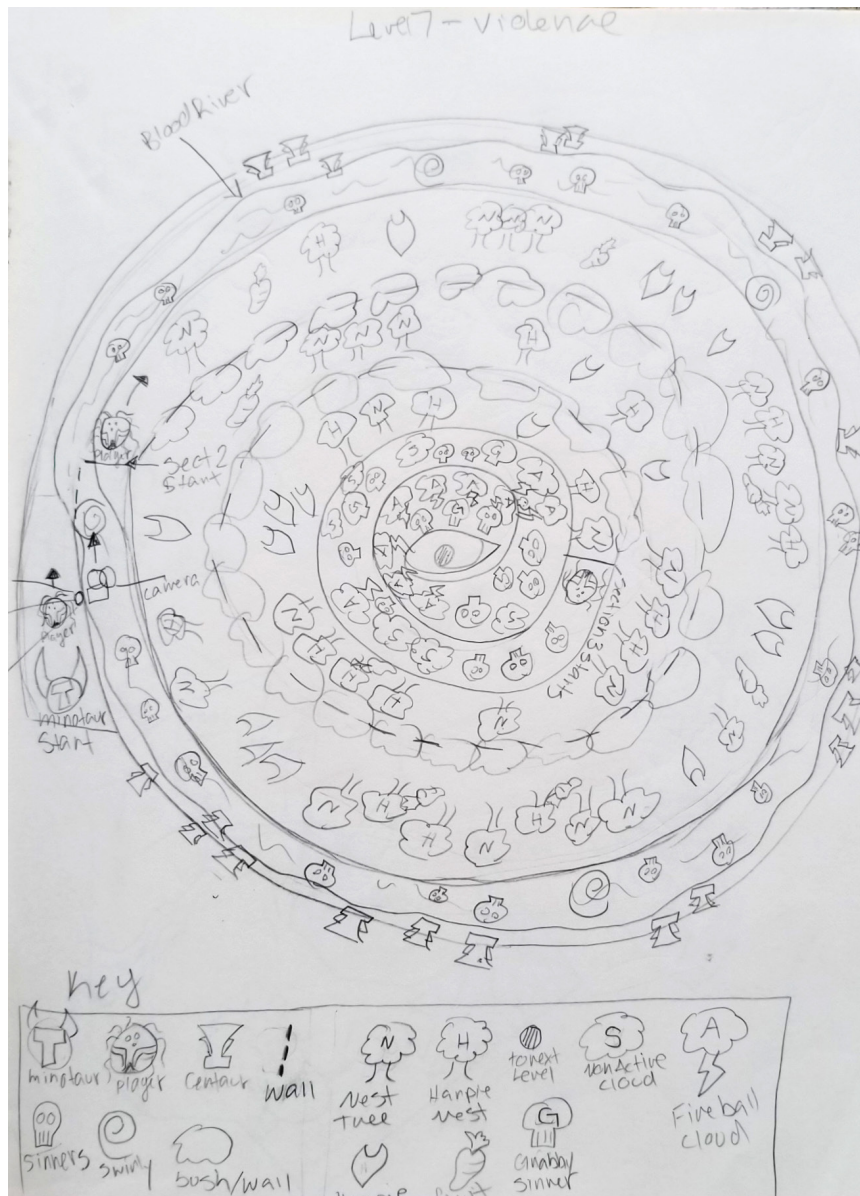 Level 7 - Videnae
Blood River
Player
Sect 2
Start
camera
Player
minotaur
Start
Section 3 Starts
Key
minotaur
player
Centaur
wall
Nest
Tree
Harpie
Nest
to next
Level
S
NonActive
cloud
A
Fireball
cloud
T
N
H
sinners
swirly
bush/wall
G
Grabby
sinner